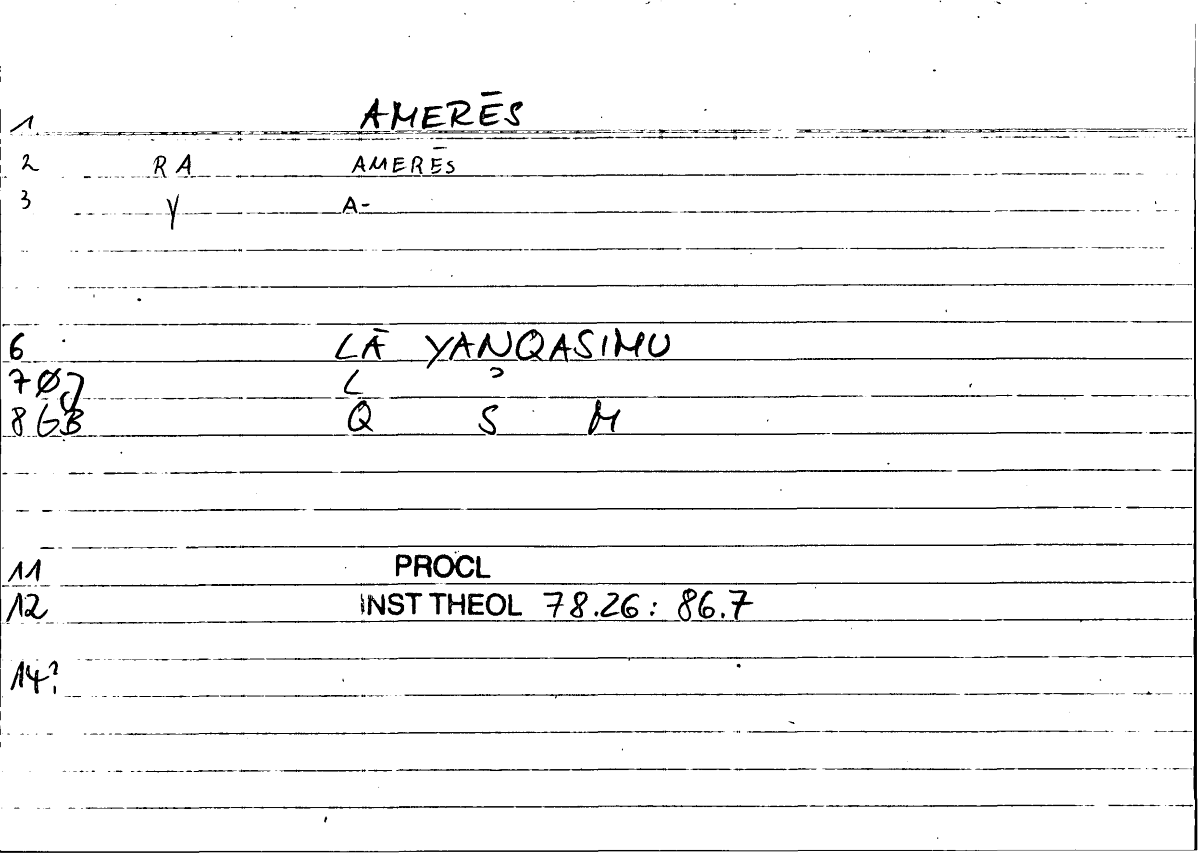 1 AMERĒS
2 RA AMERĒS
3 Y A-
6 LĀ YANQASIMU
7 Ø L ʾ
8 GB Q S M
11 PROCL
12 INST THEOL 78.26: 86.7
14?